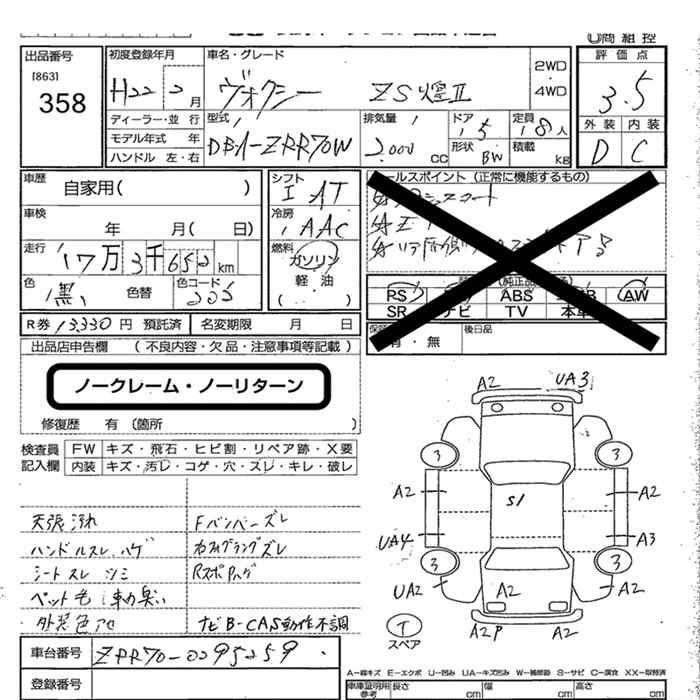 出品番号
[863]
358
初度登録年月
H22 2月
車名・グレード
ヴォクシー ZS煌Ⅱ
2WD
4WD
評価点
3.5
外装 内装
D C
ディーラー・並行
モデル年式 年
ハンドル 左・右
型式
DBA-ZRR70W
排気量
2000 cc
ドア 5
形状 BW
定員 8人
積載 kg
車歴 自家用( )
車検 年 月( 日)
走行 17万3千652km
色 黒 色替 色コード 205
シフト
I AT
冷房
AAC
燃料
ガソリン
軽油
( )
セールスポイント (正常に機能するもの)
PS ABS AW
SR ナビ TV 本革
有・無 後日品
R券 13,330円 預託済 名変期限 月 日
出品店申告欄 (不良内容・欠品・注意事項等記載)
ノークレーム・ノーリターン
修復歴 有 〔箇所 〕
検査員記入欄
FW キズ・飛石・ヒビ割・リペア跡・X要
内装 キズ・汚レ・コゲ・穴・スレ・キレ・破レ
天張汚れ
ハンドルスレ、ハゲ
シートスレ シミ
ペット毛 車内臭い
外装色アセ
Fバンパーズレ
ナビB-CAS動作不調
A2 UA3
3 3
A2 S1 A2
UA4 A3
3 3
UA2 A2 A2
A2P A2
T
スペア
車台番号 ZRR70-0295259
登録番号
A-線キズ E-エクボ U-凹み UA-キズ凹み W-補修跡 S-サビ C-腐食 XX-取替済
車庫証明用参考 長さ cm 幅 cm 高さ cm